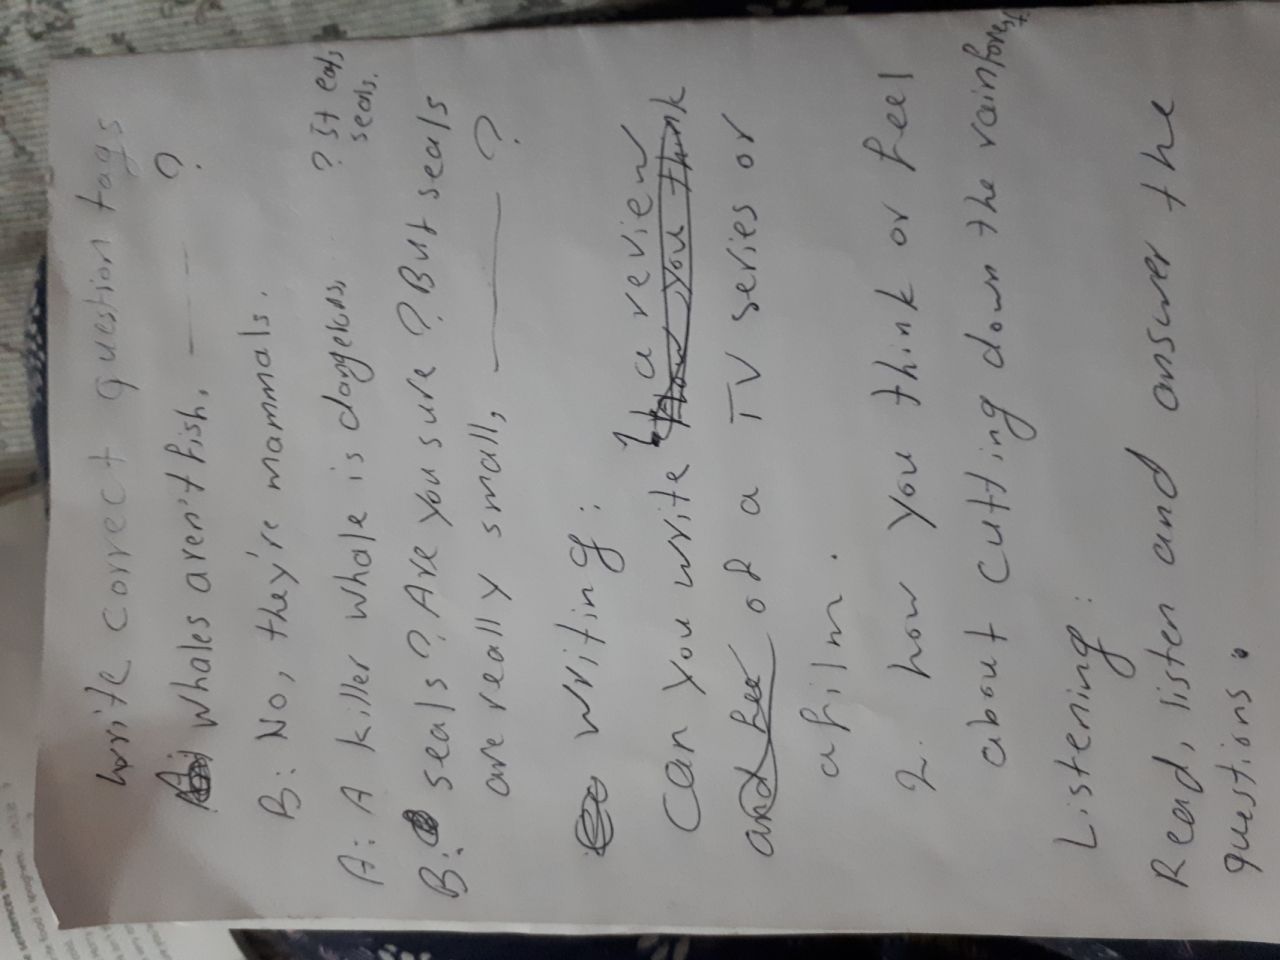 write correct question tags
A: Whales aren't fish, ---- ?
B: No, they're mammals.
A: A killer whale is dangerous, ? It eats
seals.
B: seals? Are you sure? But seals
are really small, ______ ?
writing:
Can you write 1. a review
how you think
and feel of a TV series or
a film.
2. how you think or feel
about cutting down the rainforest
Listening:
Read, listen and answer the
questions.